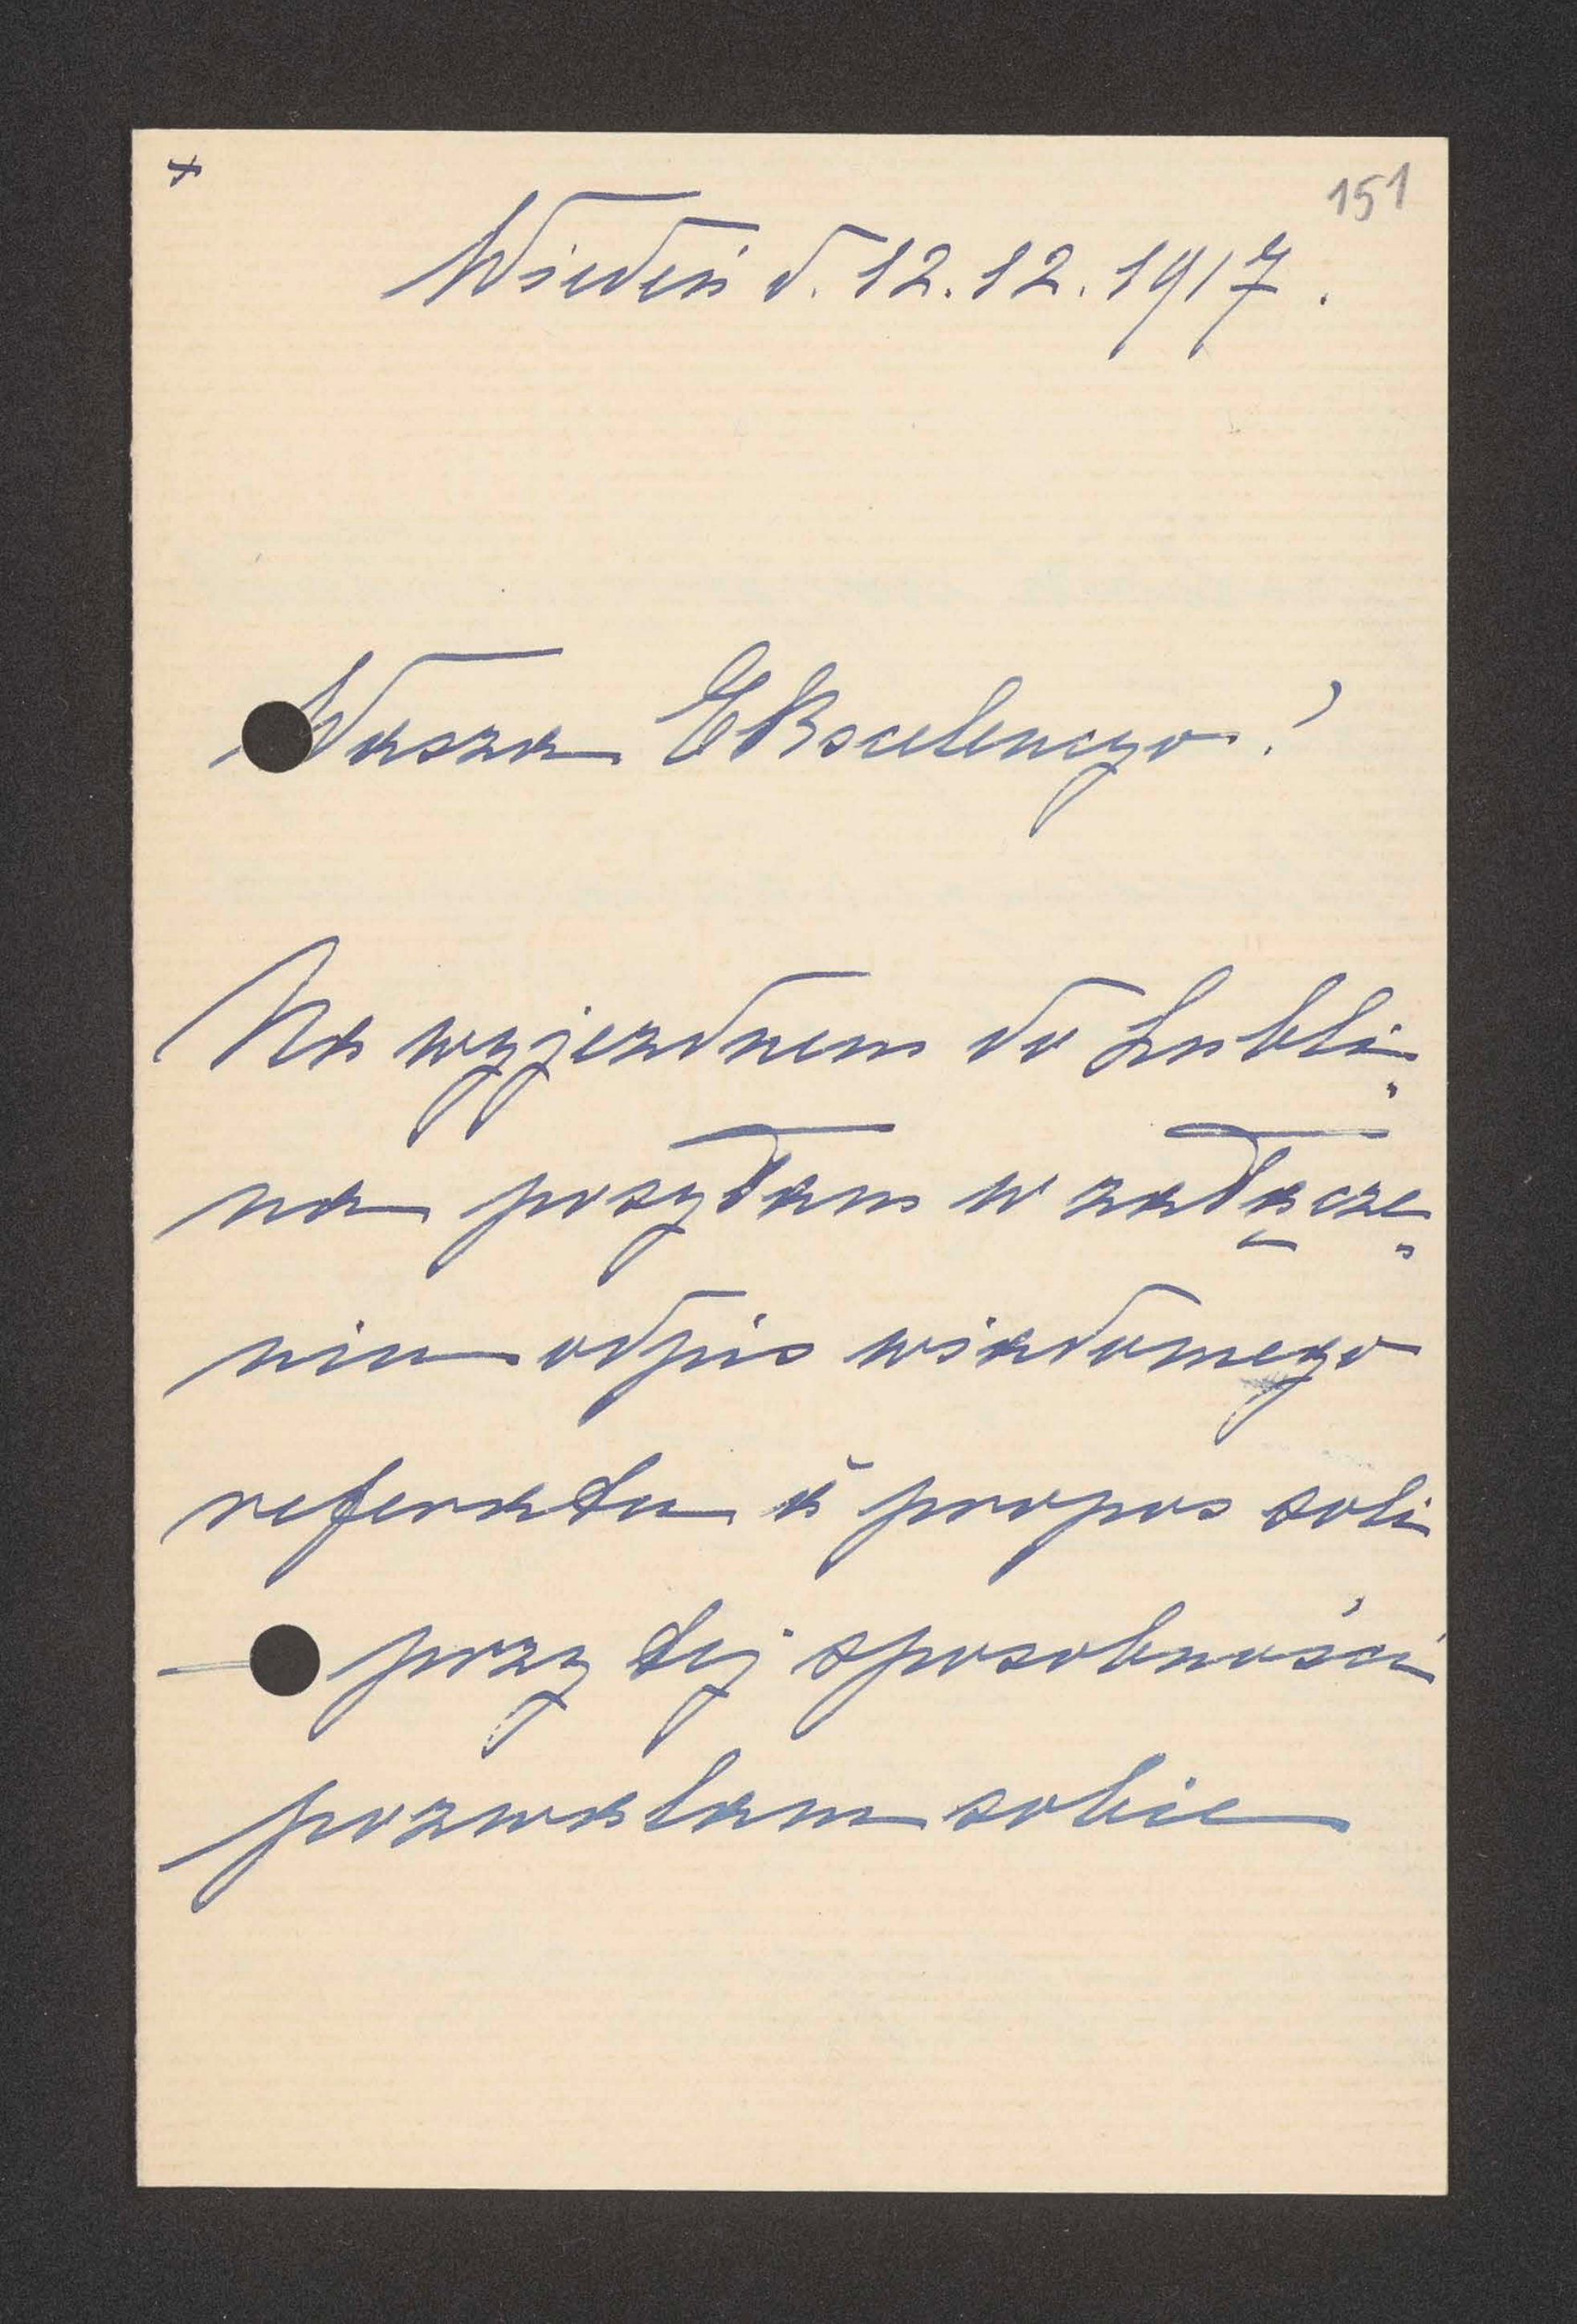 151
Wiedeń d. 12.12.1917.
Wasza Ekscelencyo!
Na wyjezdnem do Lubli-
na posyłam w załącze-
niu odpis wiadomego
referatu à propos soli
— przy tej sposobności
pozwalam sobie